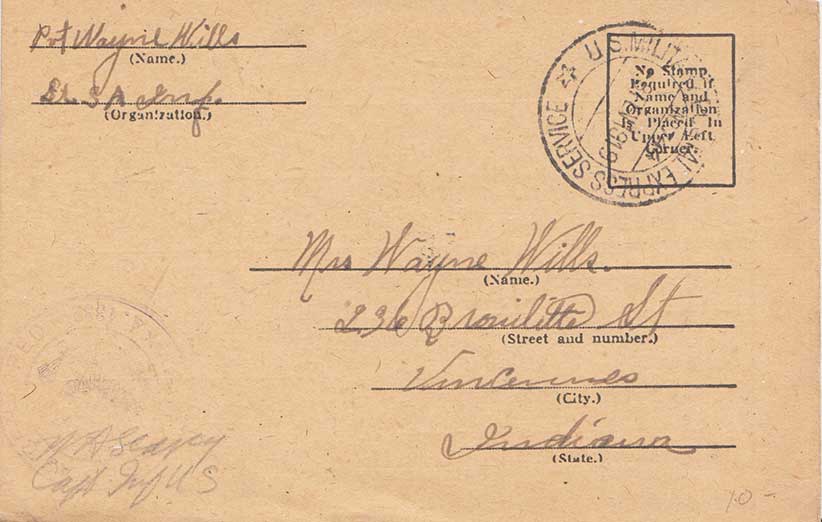 Pvt Wayne Wills
(Name.)
(Organization.)
U.S. MILIT EXPRESS SERVICE
1919
No Stamp
Required if
Name and
Organization
is Placed In
Upper Left
Corner.
Mrs Wayne Wills.
(Name.)
236 St
(Street and number.)
Vincennes
(City.)
Indiana
(State.)
Capt Inf US